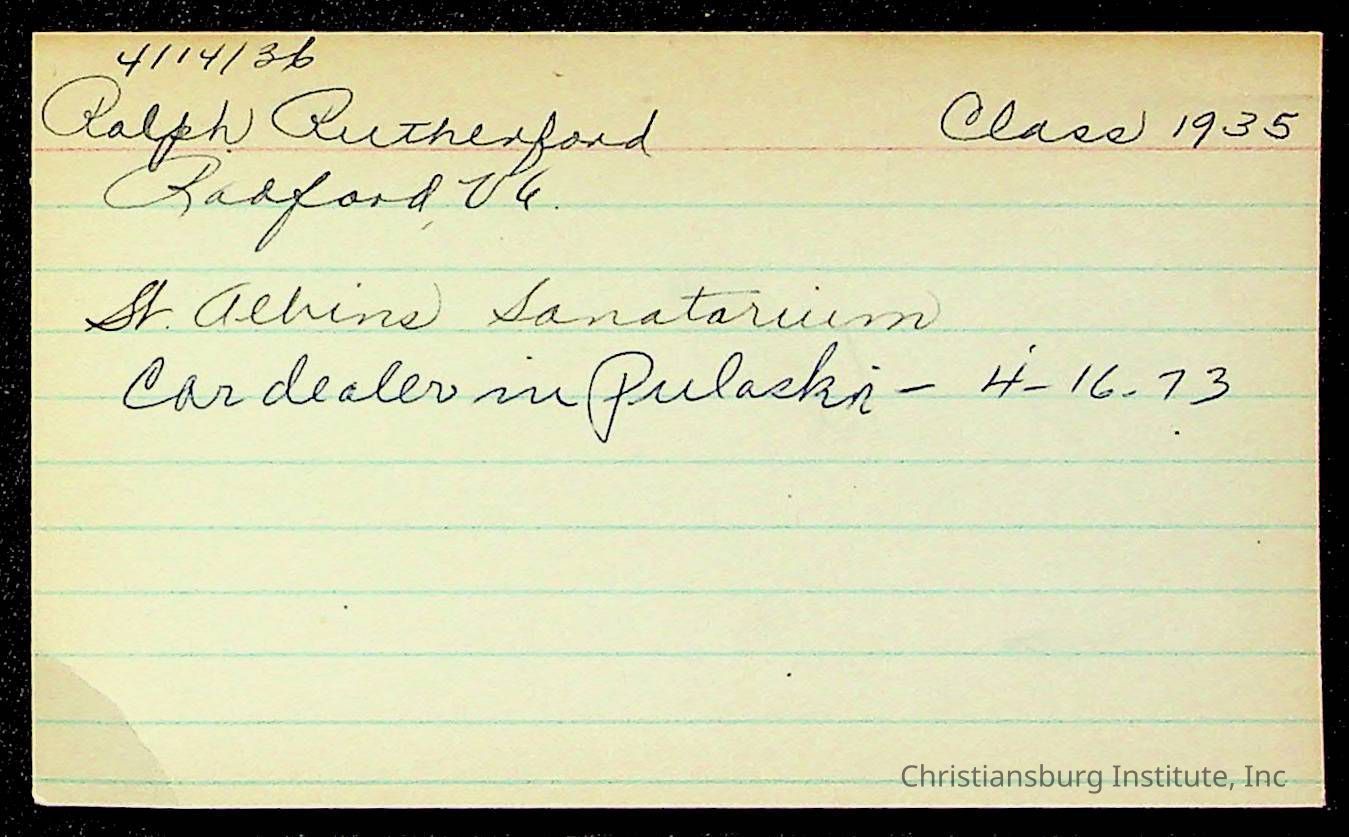 4/14/36
Ralph Rutherford Class 1935
Radford, Va.
St. Albins Sanatarium
Car dealer in Pulaski - 4-16-73
Christiansburg Institute, Inc